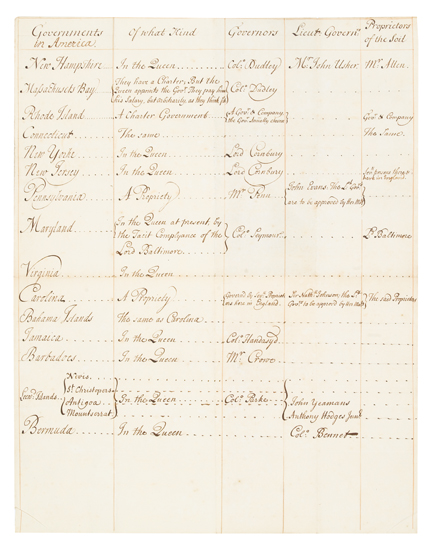 Governments in America. Of what Kind Governors Lieut. Govern.rs Proprietors of the Soil
New Hampshire In the Queen Col.o Dudley M.r John Usher M.r Allen.
Massachusets Bay They have a Charter, But the Queen appoints the Gov.r They pay him his Salary, but as they think fit Col.o Dudley
Rhode Island A Charter Government A Gov.r & Company the Gov.r Annually chosen Gov.r & Company
Connecticut The same The Same.
New Yorke In the Queen Lord Cornbury
New Jersey In the Queen Lord Cornbury
Pennsylvania A Propriety M.r Penn John Evans. The L.t Gov.r are to be approved by her Ma.ty
Maryland In the Queen at present, by the Tacit Complyance of the Lord Baltimore Col.o Seymour L.d Baltimore
Virginia In the Queen
Carolina A Propriety Governed by in England S.r Nath. Johnson; the L.t Gov.r to be approved by her Ma.ty The said Proprietors
Bahama Islands The same as Carolina
Jamaica In the Queen Col.o Handasyd
Barbadoes In the Queen M.r Crowe
Leew.d Islands Nevis St Christophers Antigoa Mountserrat In the Queen Col.o Parke John Yeamans Anthony Hodges
Bermuda In the Queen Col.o Bennet